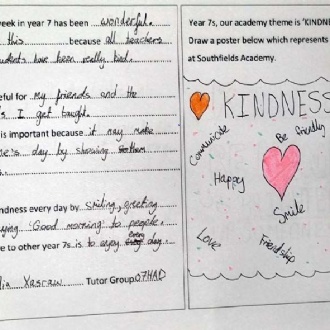 week in year 7 has been wonderful.
this because all teachers
students have been really kind.
eful for my friends and the
s I get taught.
is important because it may make
ne's day by showing
ndness every day by smiling, greeting
ying 'Good morning' to people.
e to other year 7s is to enjoy every day.
lia Tutor Group 07HAD
Year 7s, our academy theme is 'KINDN
Draw a poster below which represents
at Southfields Academy.
KINDNESS
Communicate
Be friendly
Happy
Smile
Love
Friendship